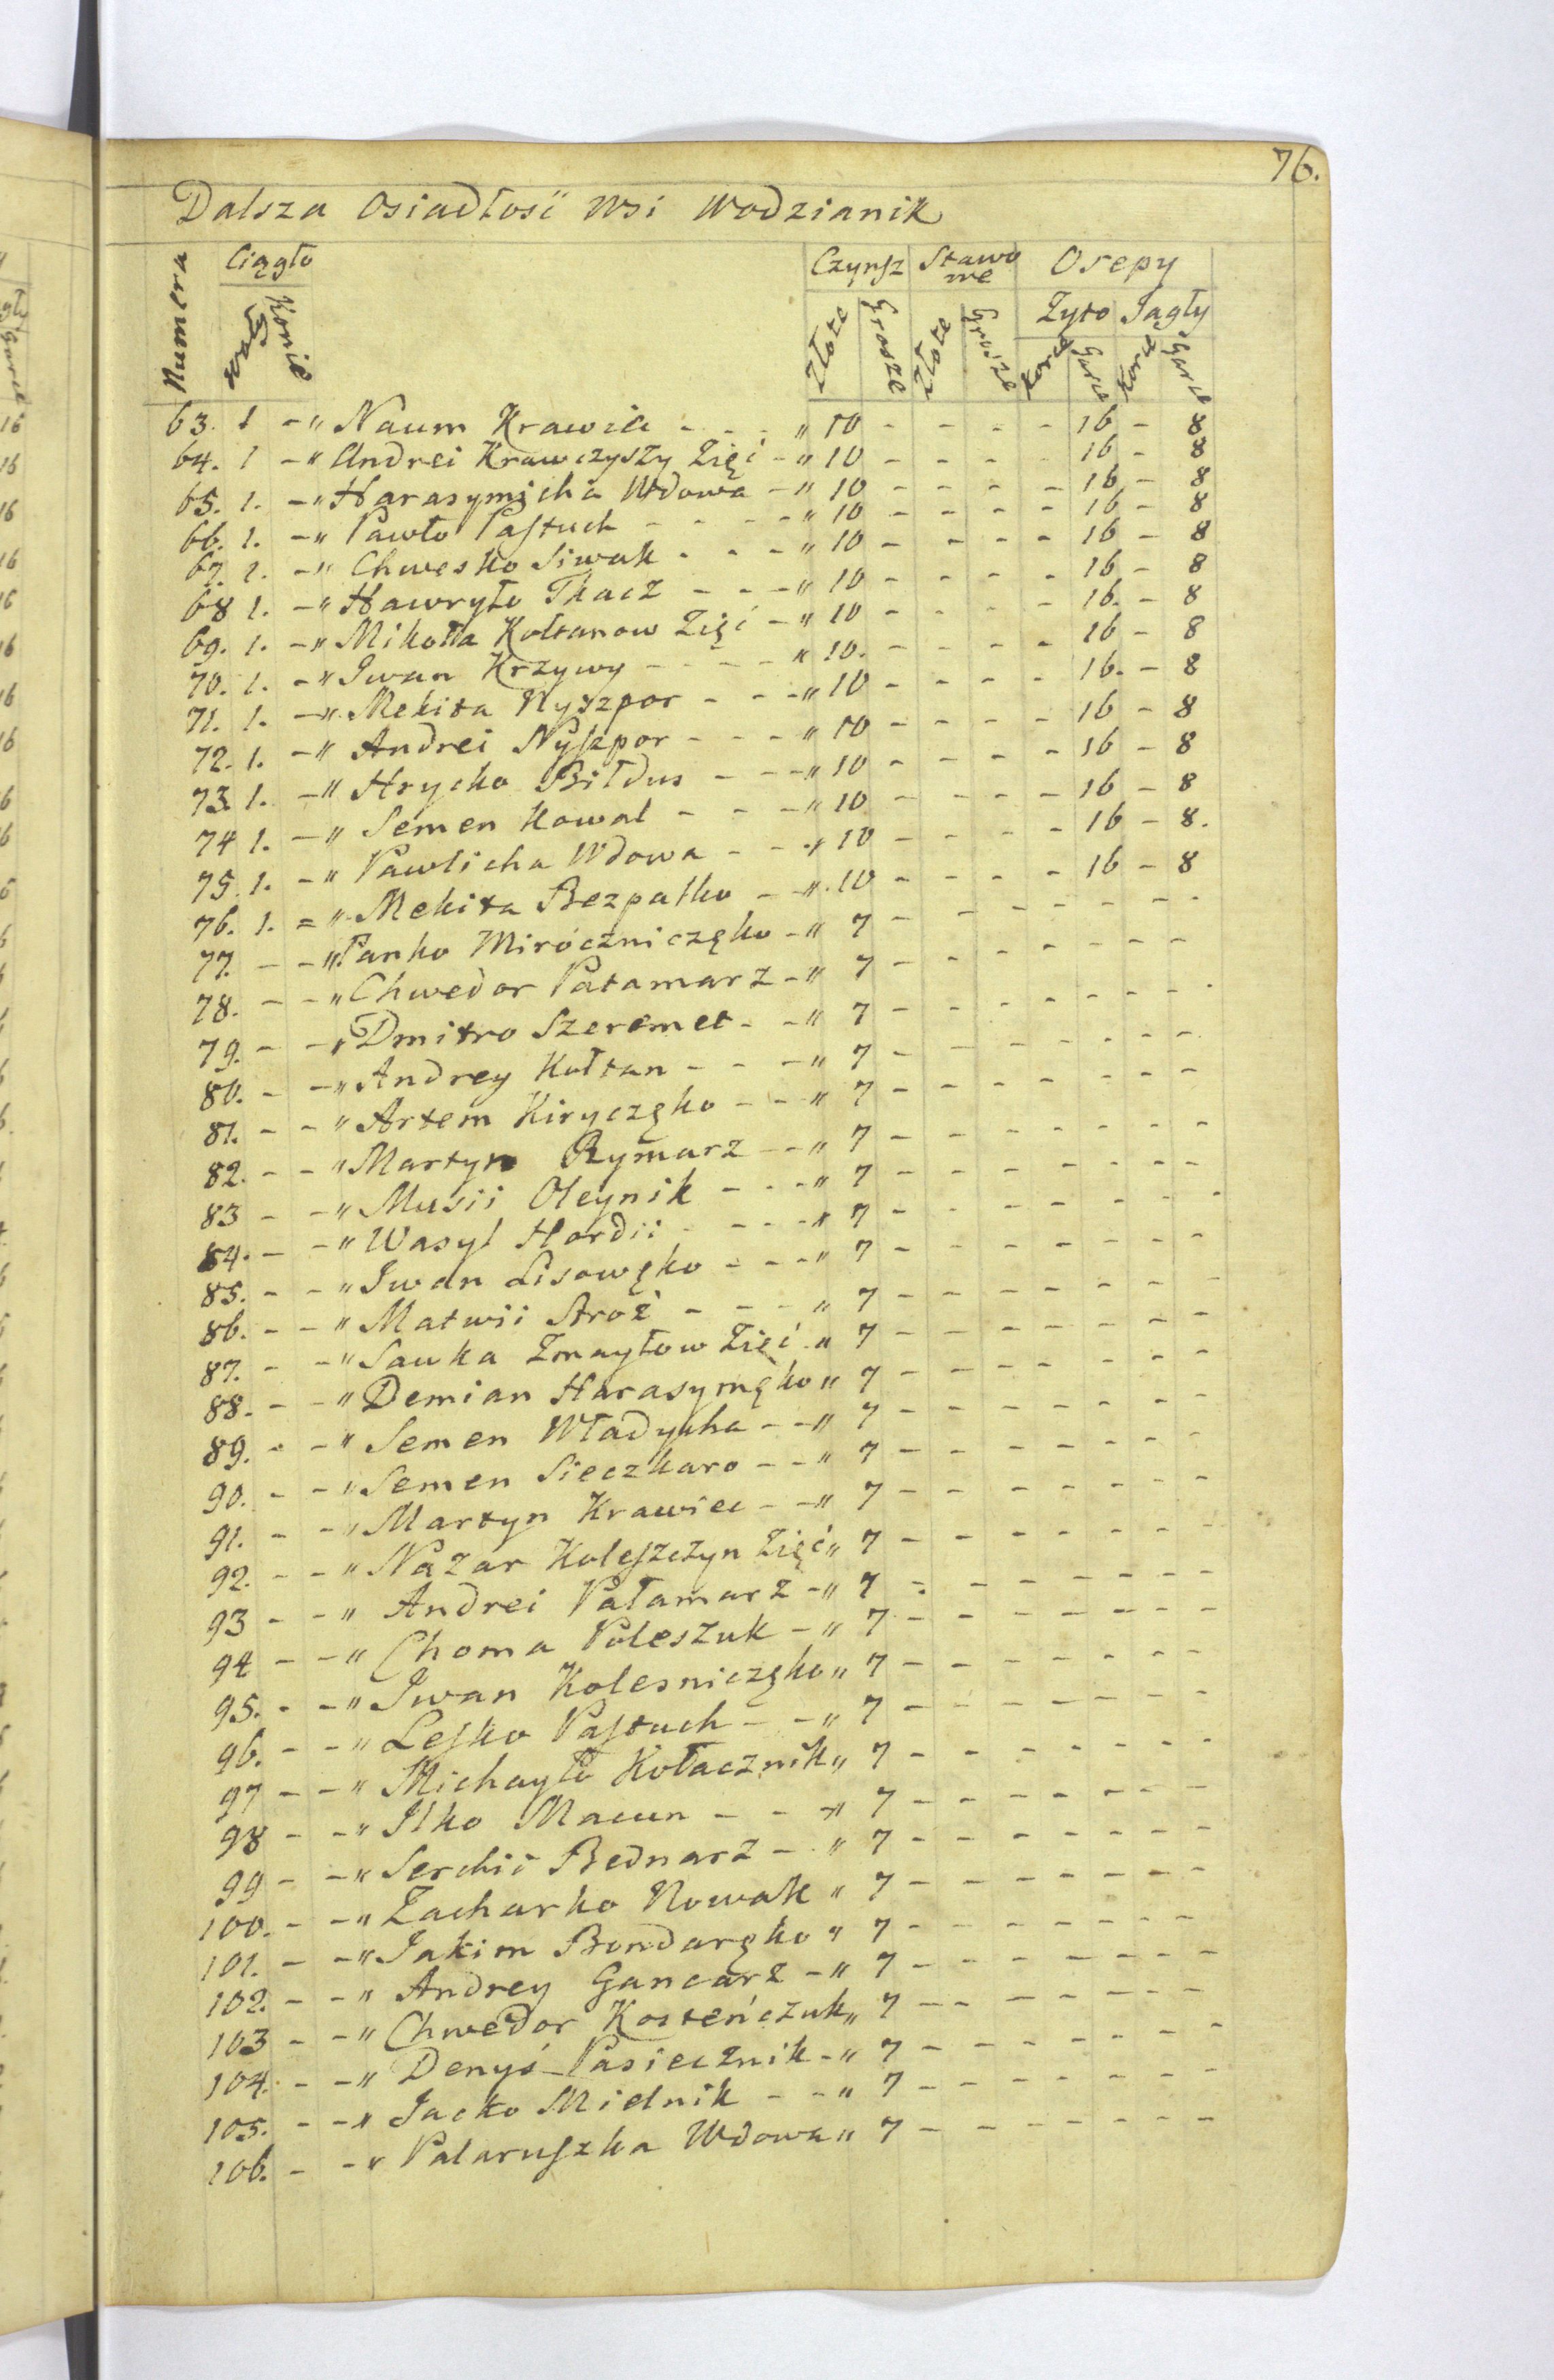 76.
Dalsza Osiadłość Wsi Wodzianik
Numera Ciągło Czynsz Stawowe Osepy
Konie Złote Grosze Złote Grosze Żyto Jagły
Garce Garce
63. 1 - " Naum Krawiec - - - " 10 - - - - 16 - 8
64. 1 - " Andrei Krawczyszy Zięć - " 10 - - - - 16 - 8
65. 1. - " Harasymicha Wdowa - " 10 - - - - 16 - 8
66. 1. - " Pawło Pastuch - - - - " 10 - - - - 16 - 8
67. 1. - " Chwesko Siwak - - - " 10 - - - - 16 - 8
68 1. - " Hawryło Tkacz - - - " 10 - - - - 16 - 8
69. 1. - " Mikołta Kołtanow Zięć - " 10 - - - - 16. - 8
70. 1. - " Iwan Krzywy - - - - " 10. - - - - 16 - 8
71. 1. - " Mekita Nyszpor - - - " 10 - - - - 16. - 8
72. 1. - " Andrei Nyszpor - - - " 10 - - - - 16 - 8
73. 1. - " Hrycko Biłdus - - - " 10 - - - - 16 - 8
74 1. - " Semen Kowal - - - " 10 - - - - 16 - 8
75. 1. - " Pawlicha Wdowa - - - " 10 - - - - 16 - 8.
76. 1. = " Mekita Bezpalko - - " 10 - - - - 16 - 8
77. - - " Panko Miróczniczęko - " 7 - - - - - - -
78. - - " Chwedor Patamarz - " 7 - - - - - - -
79. - - " Dmitro Szeremet - - " 7 - - - - - - -
80. - - " Andrey Kołtan - - - " 7 - - - - - - -
81. - - " Artem Kiryczęko - - - " 7 - - - - - - -
82. - - " Martyn Rymarz - - " 7 - - - - - - -
83 - - " Musii Oleynik - - - " 7 - - - - - - -
84. - - " Wasyl Hordii - - - - " 7 - - - - - - -
85. - - " Iwan Lisowęko - - - " 7 - - - - - - -
86. - - " Matwii Stroż - - - " 7 - - - - - - -
87. - - " Sawka Zmayłow Zięć - " 7 - - - - - - -
88. - - " Demian Harasymęko " 7 - - - - - - -
89. - - " Semen Władyka - - " 7 - - - - - - -
90. - - " Semen Sieczkaro - - " 7 - - - - - - -
91. - - " Martyn Krawiec - - " 7 - - - - - - -
92. - - " Nazar Koleszczyn Zięć " 7 - - - - - - -
93 - - " Andrei Pałamarz - " 7 - - - - - - -
94 - - " Choma Poleszuk - " 7 - - - - - - -
95. - - " Iwan Kolesniczęko " 7 - - - - - - -
96. - - " Lesko Pastuch - - " 7 - - - - - - -
97 - - " Michayło Kołacznik " 7 - - - - - - -
98 - - " Ilko Macun - - - " 7 - - - - - - -
99 - - " Serchii Bednarz - " 7 - - - - - - -
100. - - " Zacharko Nowak " 7 - - - - - - -
101. - - " Jakim Bondaręko " 7 - - - - - - -
102. - - " Andrey Gancarz - " 7 - - - - - - -
103 - - " Chwedor Kosteńczuk " 7 - - - - - - -
104. - - " Denyś Pasiecznik - " 7 - - - - - - -
105. - - " Jacko Mielnik - - " 7 - - - - - - -
106. - - " Palaruszka Wdowa " 7 - - - - - - -